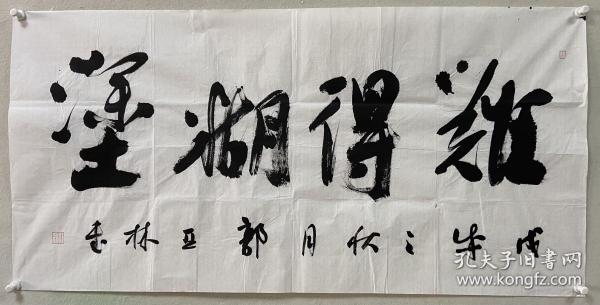 難得糊塗
戊之秋月郭亚林书
孔夫子旧书网
kongfz.com